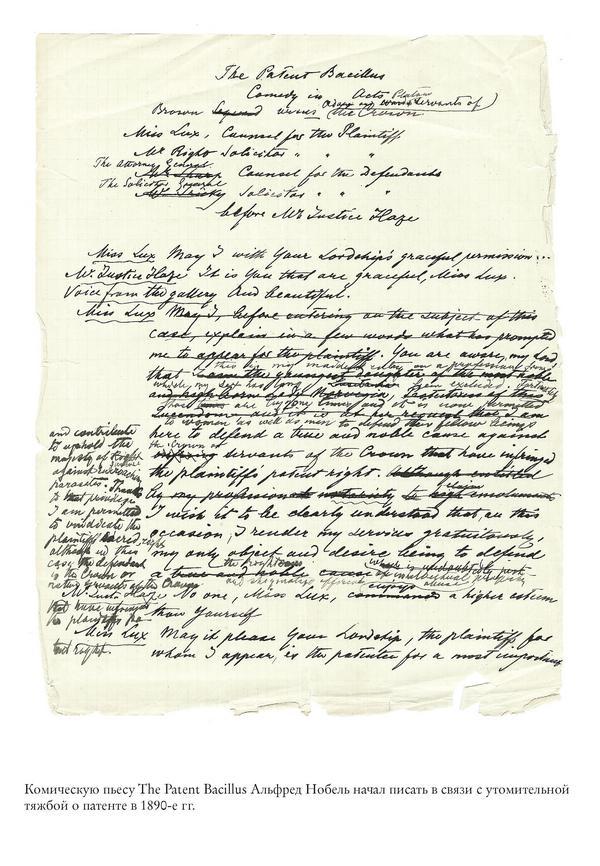 The Patent Bacillus
Comedy in Acts
Brown versus the Crown
servants of)
Miss Lux, Counsel for the Plaintiff
Mr Right Solicitor " " "
The Attorney General
Counsel for the defendants
The Solicitor General
Solicitor " " "
before Mr Justice Haze
Miss Lux May I with Your Lordship's graceful permission...
Mr Justice Haze It is You that are graceful, Miss Lux.
Voice from the gallery And beautiful.
Miss Lux May I, before entering on the subject of this
case, explain in a few words what has prompted
me to appear for the plaintiff. You are aware, my Lord
that
to women as well as men to defend their fellow beings
here to defend a true and noble cause against
the Crown or
servants of the Crown that have infringed
the plaintiff's patent right. Although entitled
by my profession to
I wish it to be clearly understood that, on this
occasion, I render my services gratuitously,
my only object and desire being to defend
a true and noble cause
Mr Justice Haze No one, Miss Lux, commands a higher esteem
than Yourself
Miss Lux May it please Your Lordship, the plaintiff for
whom I appear, is the patentee for a most important
and contribute
to uphold the
majesty of Right
against
parasites. Thanks
to that privilege
I am permitted
to vindicate the
plaintiff's sacred rights
although in this
case, the defendant
is the Crown or
servants of the Crown
that have infringed
the plaintiff's pa-
tent right.
Комическую пьесу The Patent Bacillus Альфред Нобель начал писать в связи с утомительной
тяжбой о патенте в 1890-е гг.